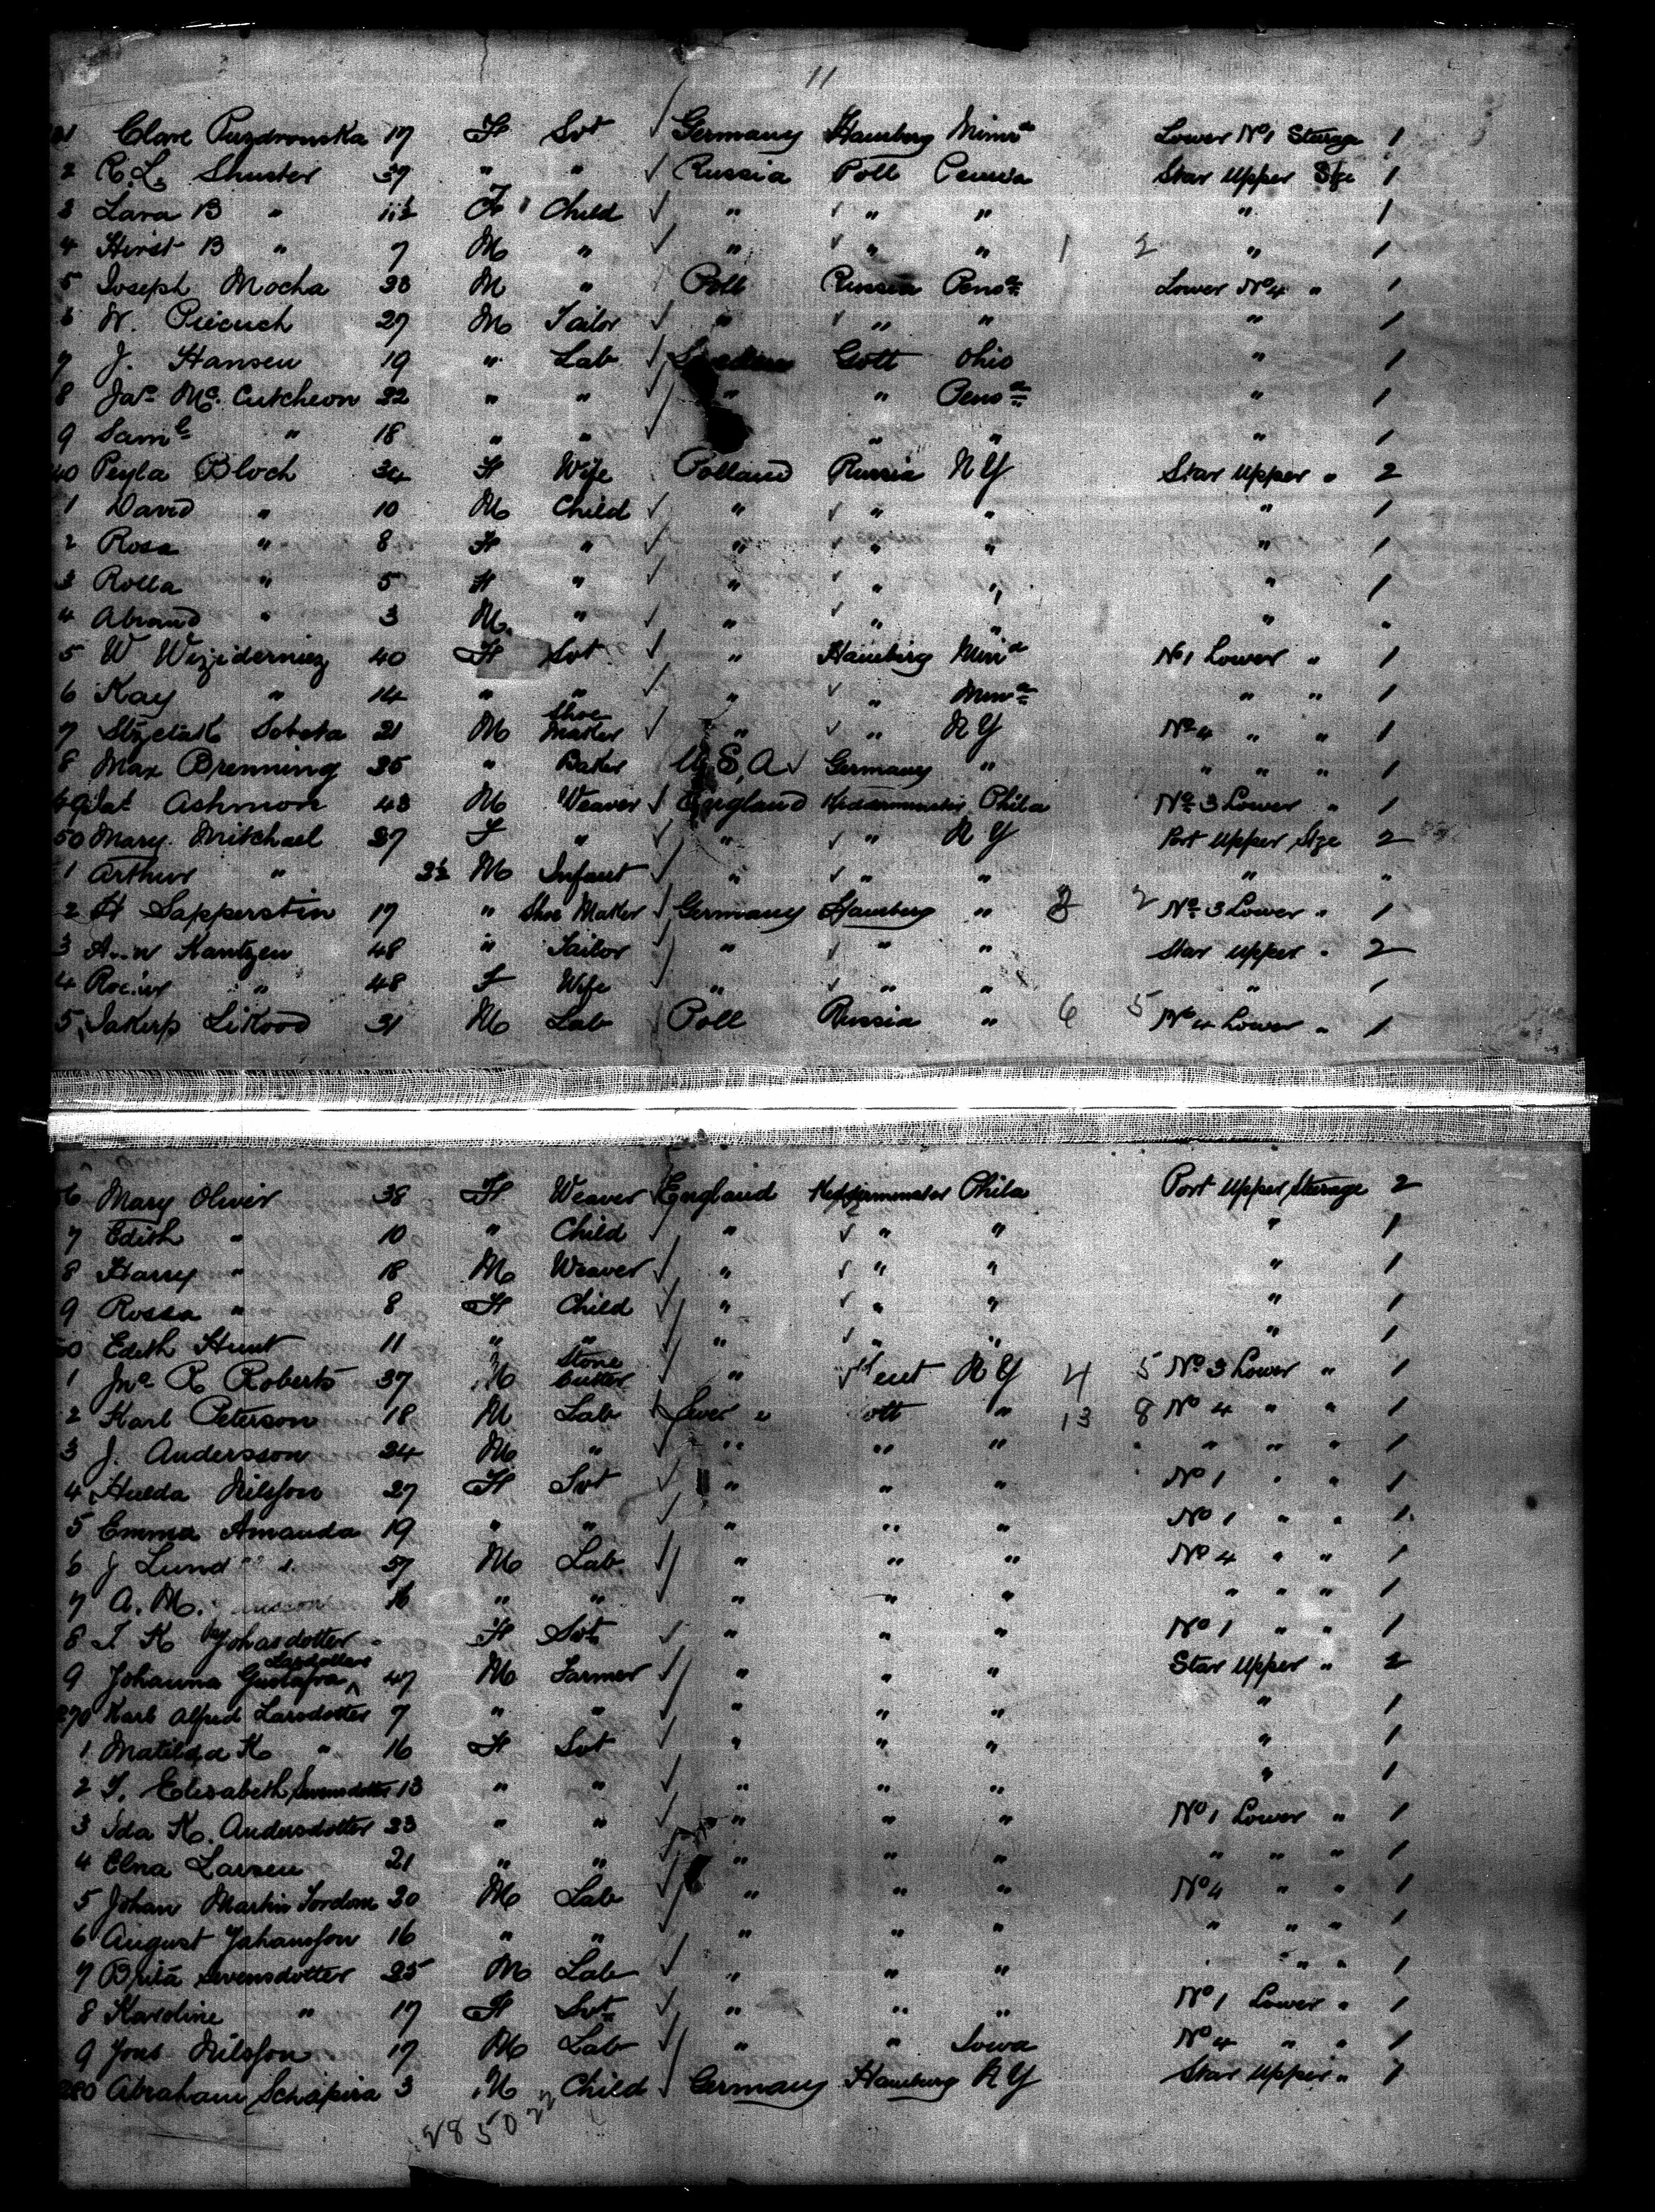 11
31 Clare Puzdronska 17 F Svt ✓ Germany Hamburg Minna Lower No 1 Sterage 1
2 R. L. Shuster 37 " " ✓ Russia Poll Penna Star Upper Stge 1
3 Lara B " 11½ F Child ✓ " ✓ " " " 1
4 Hirst B " 7 M " ✓ " ✓ " " 1 2 " 1
5 Joseph Mocha 33 M " ✓ Poll Russia Pensa Lower No 4 " 1
6 W. Piecuch 27 M Tailor ✓ " ✓ " " " 1
7 J. Hansen 19 " Lab ✓ Gott Ohio " 1
8 Jas Mc Cutcheon 22 " " ✓ " " Pensa " 1
9 Saml " 18 " " ✓ " " " 1
40 Peyla Bloch 34 F Wife Polland Russia N Y Star Upper " 2
1 David " 10 M Child ✓ " ✓ " " " 1
2 Rosa " 8 F " ✓ " ✓ " " " 1
3 Rolla " 5 F " ✓ " ✓ " " " 1
4 " 3 M " ✓ " ✓ " " " "
5 W 40 F Svt ✓ " Hamburg Minna No 1 Lower " 1
6 Kay " 14 " " ✓ " ✓ " Minna " " 1
7 Sobota 21 M Shoe Maker ✓ " ✓ " N Y No 4 " " 1
8 Max Brenning 35 " Baker U.S.A ✓ Germany " " " " 1
49 Ashmon 43 M Weaver ✓ England Kidderminster Phila No 3 Lower " 1
50 Mary Mitchael 37 F " ✓ " ✓ " N Y Port Upper Stge 2
1 Arthur " 3½ M Infant ✓ " ✓ " " " "
2 H Sapperstin 17 " Shoe Maker ✓ Germany Hamburg " 3 2 No 3 Lower " 1
3 Kantzen 48 " Tailor ✓ " ✓ " " Star Upper " 2
4 " 48 F Wife " ✓ " " " 1
5 Likood 31 M Lab Poll Russia " 6 5 No 4 Lower " 1
56 Mary Oliver 38 F Weaver ✓ England Kidderminster Phila Port Upper Sterage 2
7 Edith " 10 " Child ✓ " ✓ " " " 1
8 Harry " 18 M Weaver ✓ " ✓ " " " 1
9 Rossa " 8 F Child ✓ " ✓ " " " 1
60 Edith Hunt 11 " " ✓ " ✓ " " " 1
1 Jno R Roberts 37 M Stone Cutter ✓ " ✓ Kent N Y 4 5 No 3 Lower " 1
2 Karl Peterson 18 M Lab ✓ " 13 8 No 4 " " 1
3 J. Andersson 24 M " ✓ " " " " " " 1
4 Hulda Nilsson 27 F Svt ✓ " " " No 1 " " 1
5 Emma Amanda 19 " " ✓ " " " No 1 " " 1
6 J Lund 57 M Lab ✓ " " " No 4 " " 1
7 A. M. 16 " " ✓ " " " " " " 1
8 Johasdotter F Svt ✓ " " " No 1 " " 1
9 Johanna Gustafva Larsdotter 47 M Farmer ✓ " " " Star Upper " 2
270 Karl Alfred Larsdotter 7 " " ✓ " " " " 1
1 Matilda K " 16 F Svt ✓ " " " " 1
2 Elisabeth Svensdotter 13 " " ✓ " " " " 1
3 Ida K. Andersdotter 23 " " ✓ " " " No 1 Lower " 1
4 Elna Larsen 21 " " ✓ " " " " " " 1
5 Johan Martin Tordom 20 M Lab ✓ " " " No 4 " " 1
6 August Johansson 16 " " ✓ " " " " " " 1
7 Brita Svensdotter 25 M Lab ✓ " " " " " " 1
8 Karoline " 17 F Svt ✓ " " " No 1 Lower " 1
9 Jons Nilsson 17 M Lab ✓ " " Iowa No 4 " " 1
280 Abraham Schapira 3 M Child ✓ Germany Hamburg N Y Star Upper " 1